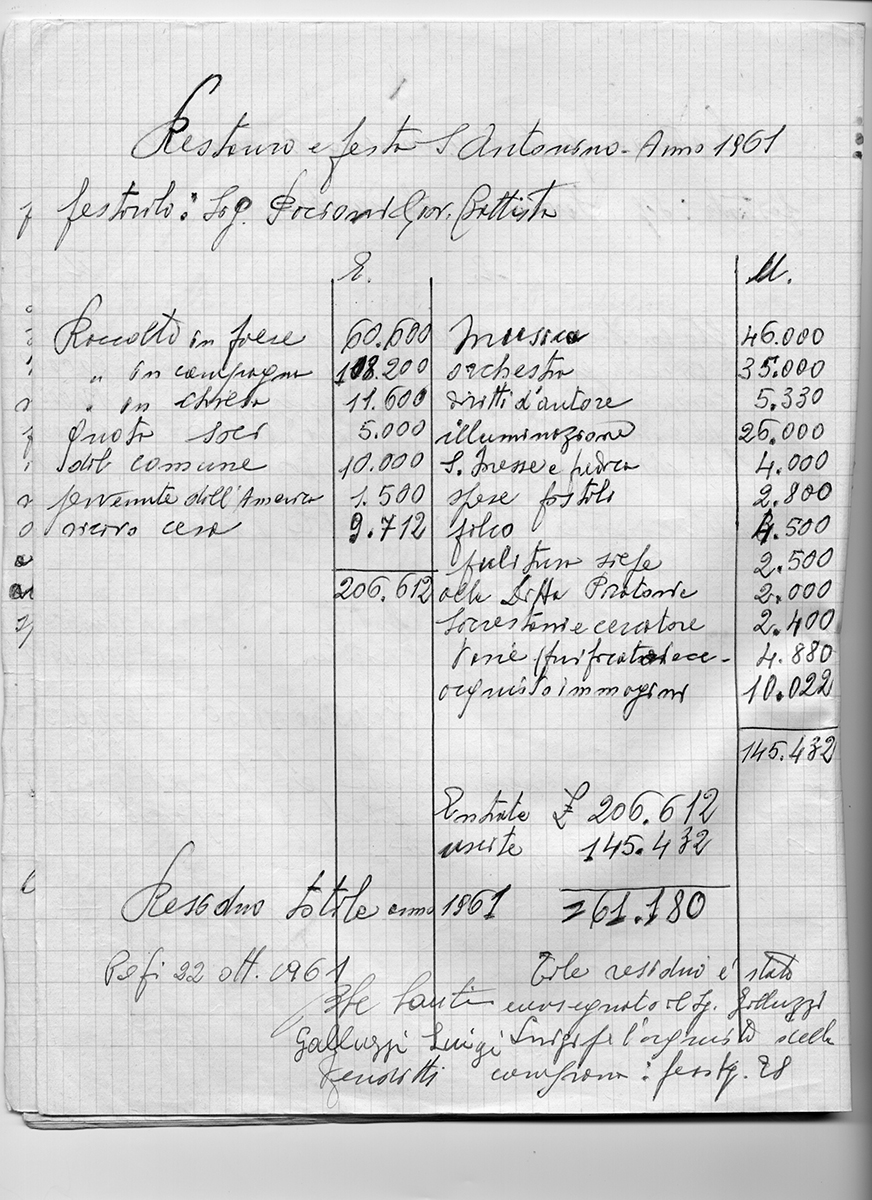 Restauro e festa S. Antonino - Anno 1961
festarolo: Sig. Giov. Battista
E. U.
Raccolto in paese 60.600 musica 46.000
" in campagna 108.200 orchestra 35.000
" in chiesa 11.600 diritti d'autore 5.330
Quota soci 5.000 illuminazione 26.000
dal comune 10.000 S. Messe e predica 4.000
pervenute dall'America 1.500 spese postali 2.800
ricavo cera 9.712 palco 4.500
pulitura siepe 2.500
206.612 alla Ditta 2.000
sacrestani e cercatore 2.400
Varie 4.880
acquisto immagini 10.022
145.432
Entrate £ 206.612
uscite 145.432
Residuo totale anno 1961 = 61.180
22 ott. 1961
Tale residuo è stato
consegnato al Sg. Galluzzi
Galluzzi Luigi Luigi per l'acquisto della
campana: peso Kg. 28